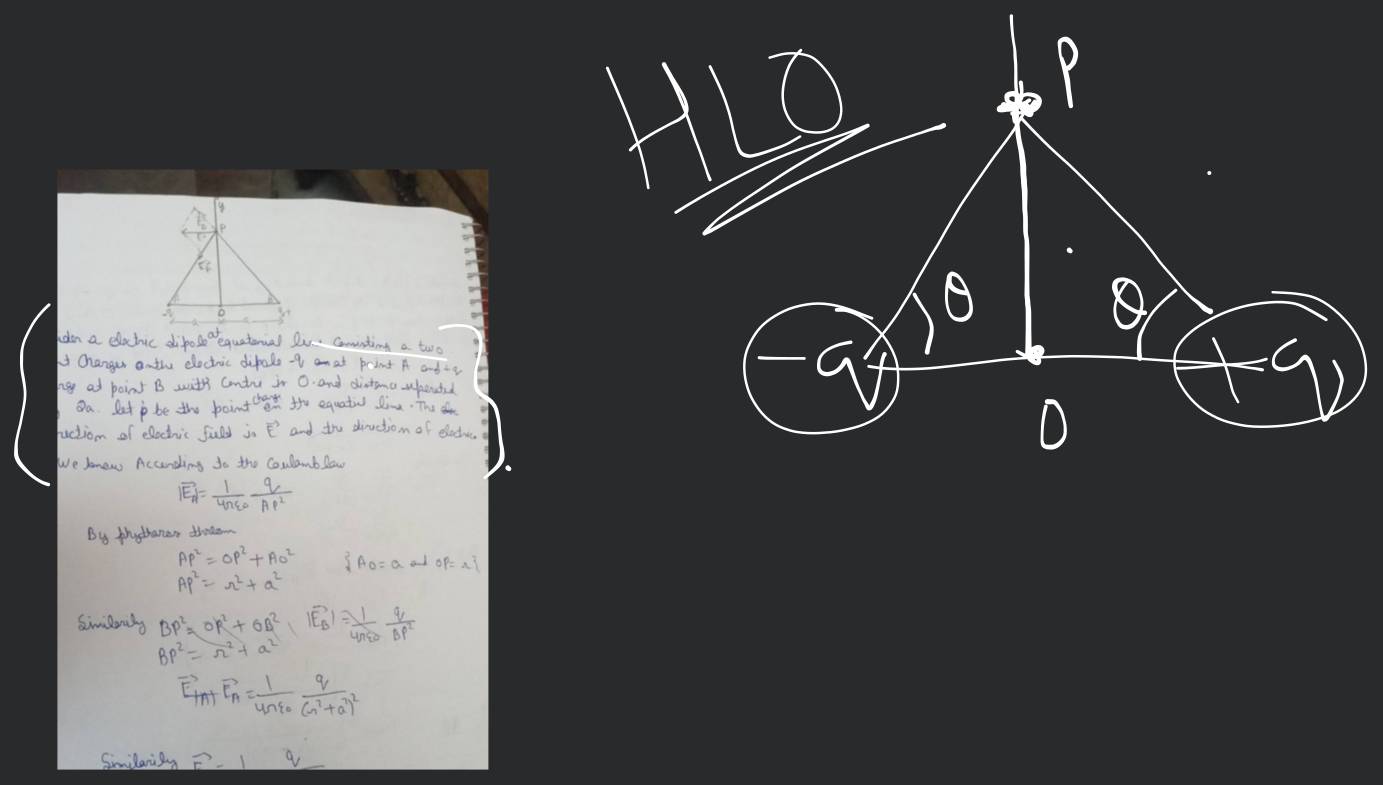 HLO
P
θ
θ
-q
+q
O
y
P
O
a
a
der a electric dipole at equatorial line consisting a two
t charges on the electric dipole -q at point A and +q
ge at point B with centre is O and distance seperated
2a. let p be the point on the line. The
rection of electric field is E⃗ and the direction of electric
We know According to the Coulamb law
|E⃗A| = 1/4πε₀ q/AP²
By
AP² = OP² + AO² {AO = a and OP = r}
AP² = r² + a²
Similarily BP² = OP² + OB² |E⃗B| = 1/4πε₀ q/BP²
BP² = r² + a²
E⃗A = 1/4πε₀ q/(r²+a²)²
Similarily E⃗ = 1 q